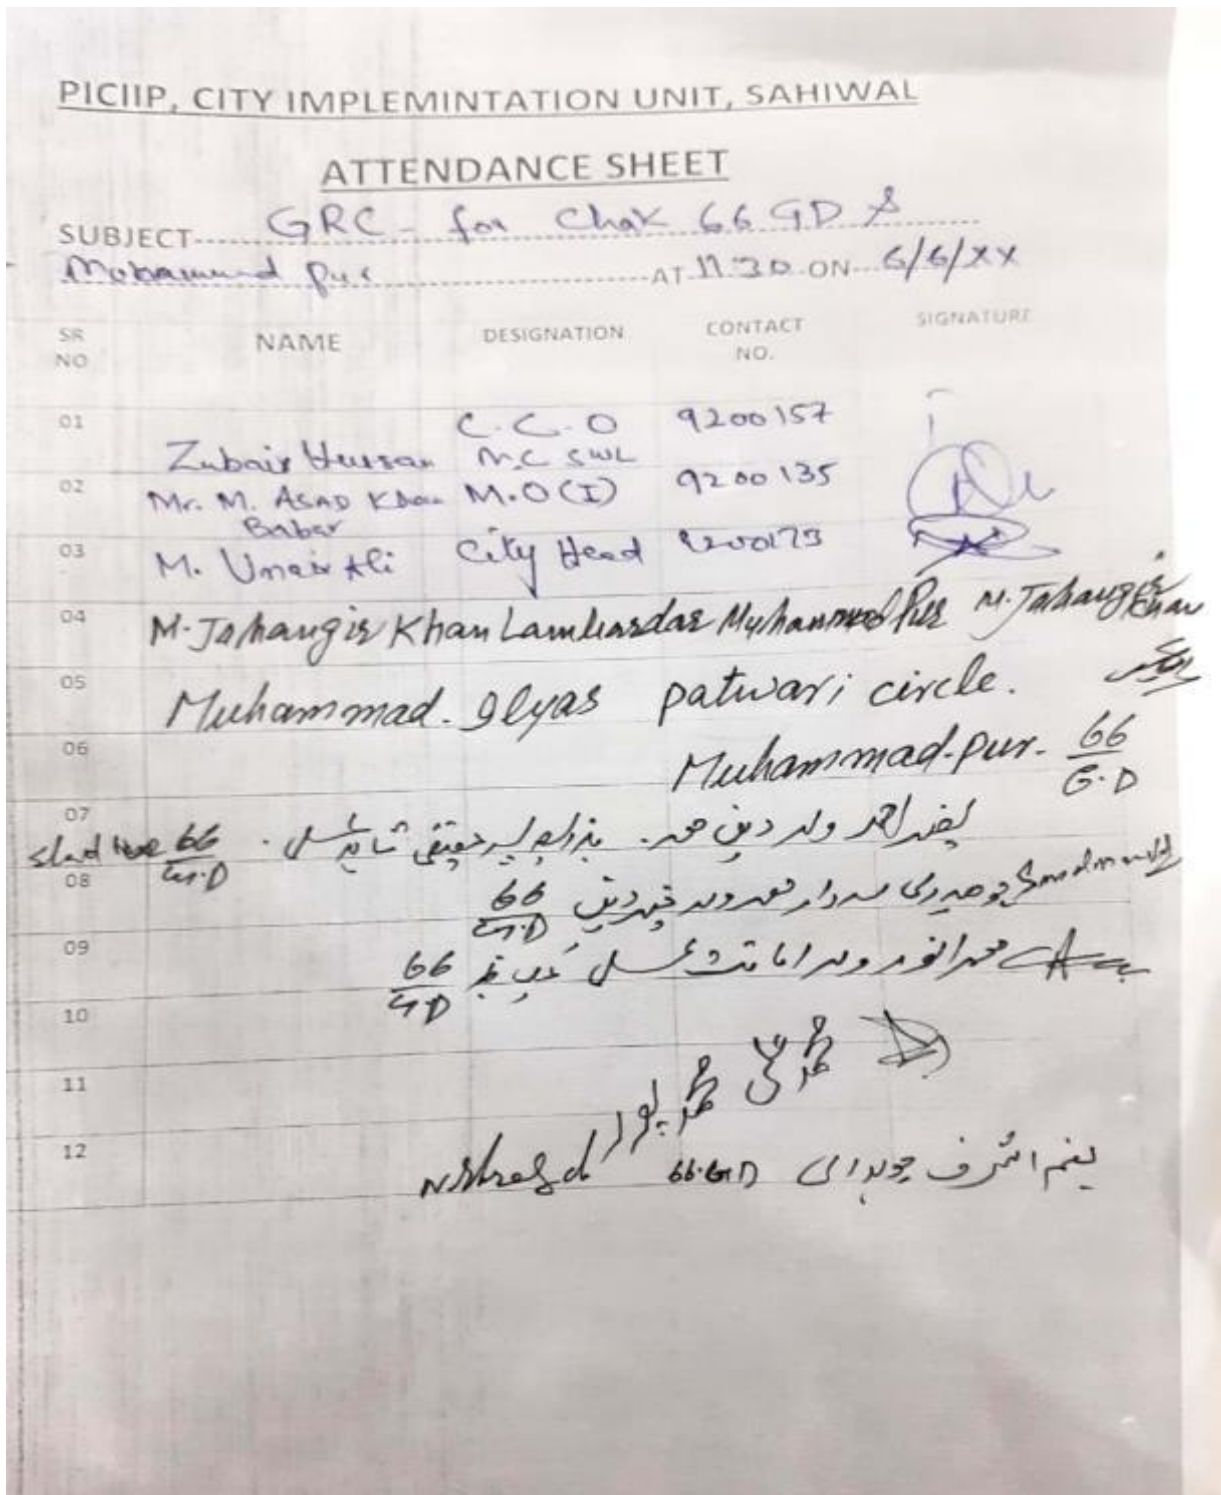 PICIIP, CITY IMPLEMINTATION UNIT, SAHIWAL
ATTENDANCE SHEET
SUBJECT GRC - for Chak 66 GD &
Mohammad Pur AT 11:30 ON 6/6/XX
SR NO NAME DESIGNATION CONTACT NO. SIGNATURE
01 Zubair Hussan C.C.O M.C SWL 9200157
02 Mr. M. ASAD Khan Babar M.O (I) 9200135
03 M. Umair Ali City Head 9200173
04 M. Jahangir Khan Lambardar Muhammad Pur M. Jahangir Khan
05 Muhammad. Ilyas patwari circle.
06 Muhammad-pur. 66 G.D
07 احمد ولد دین محمد 66 G.D
08 چوہدری سردار محمد ولد 66 G.D
09 محمد انور ولد امانت 66 G.D
10
11 محمد پور
12 اشرف 66.GD